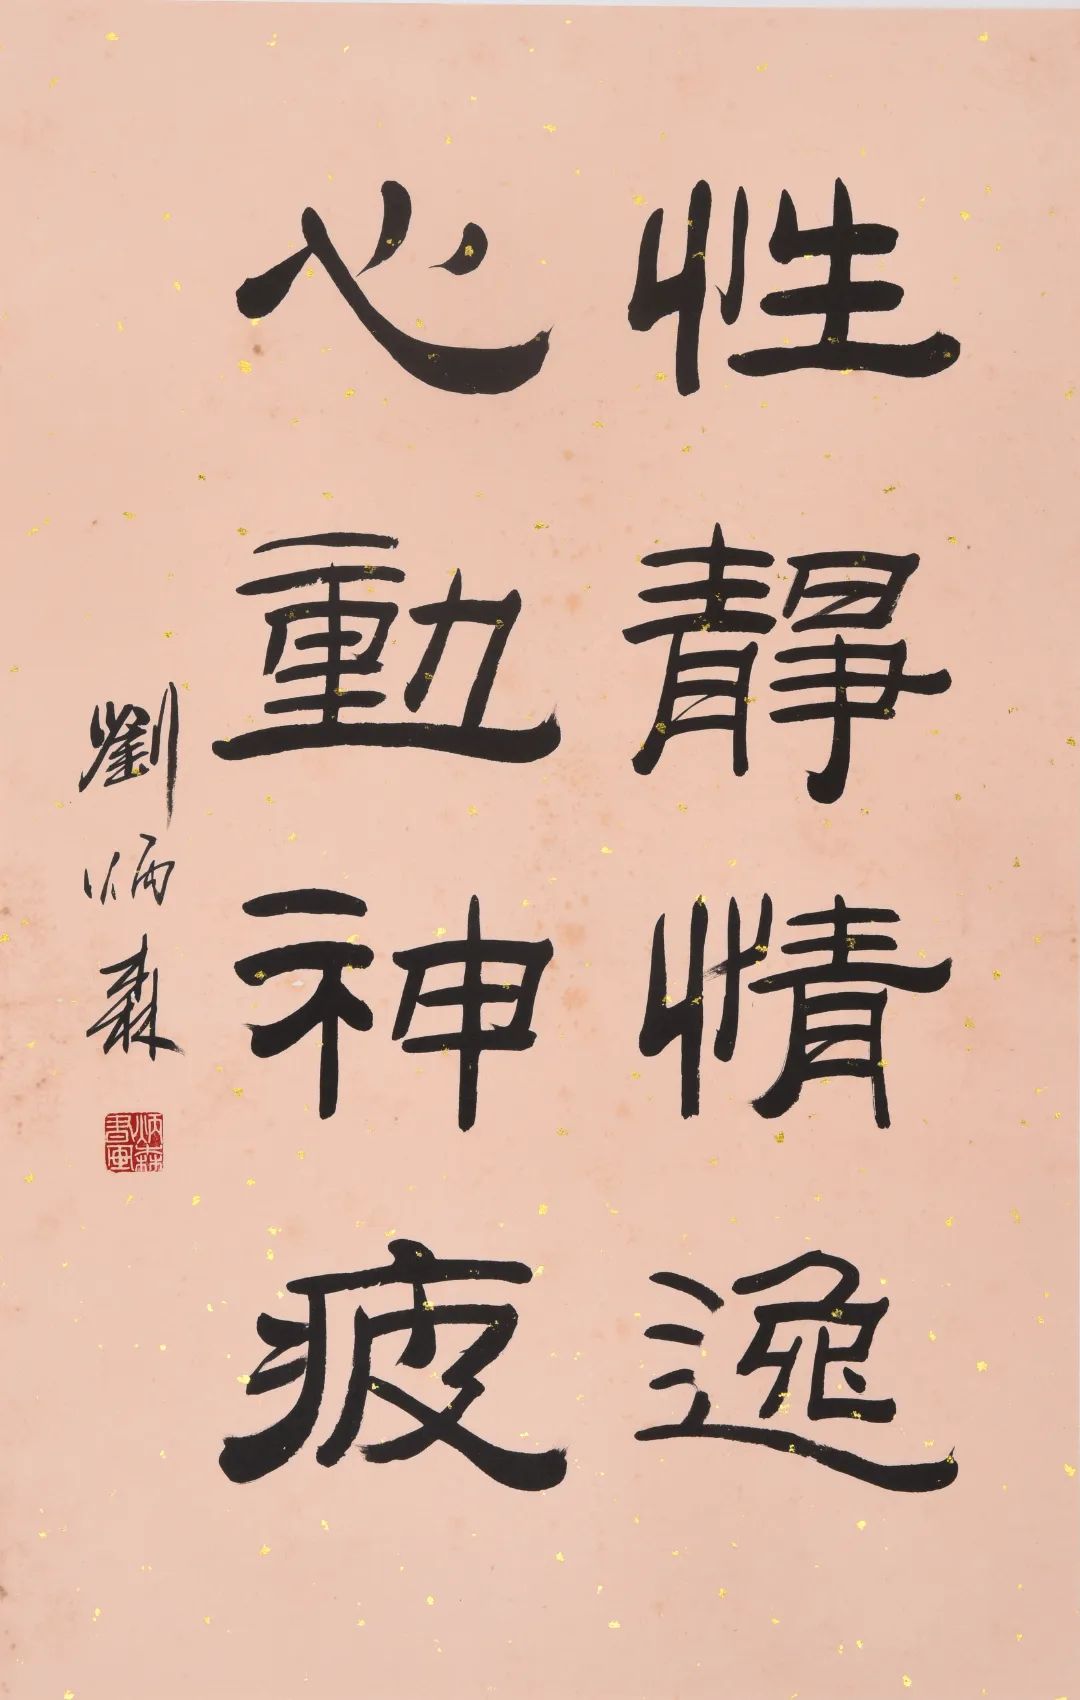 性靜情逸
心動神疲
劉炳森
炳森書畫